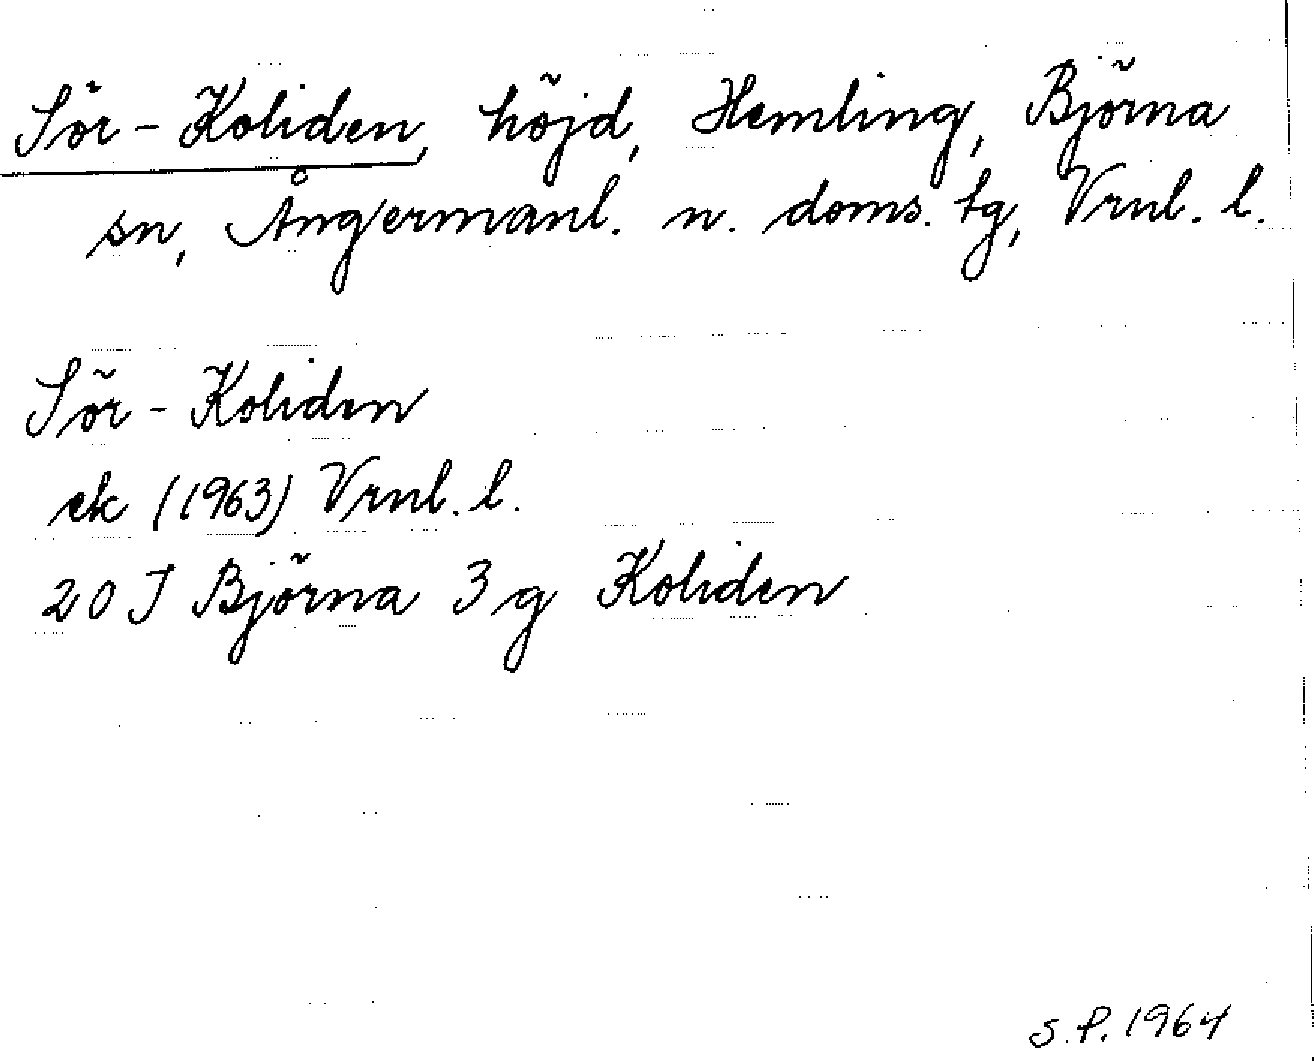 Sör-Koliden, höjd, Hemling, Björna
sn, Ångermanl. n. doms. tg, Vrnl. l.
Sör-Koliden
ek (1963) Vrnl. l.
20 J Björna 3 g Koliden
S.P. 1964